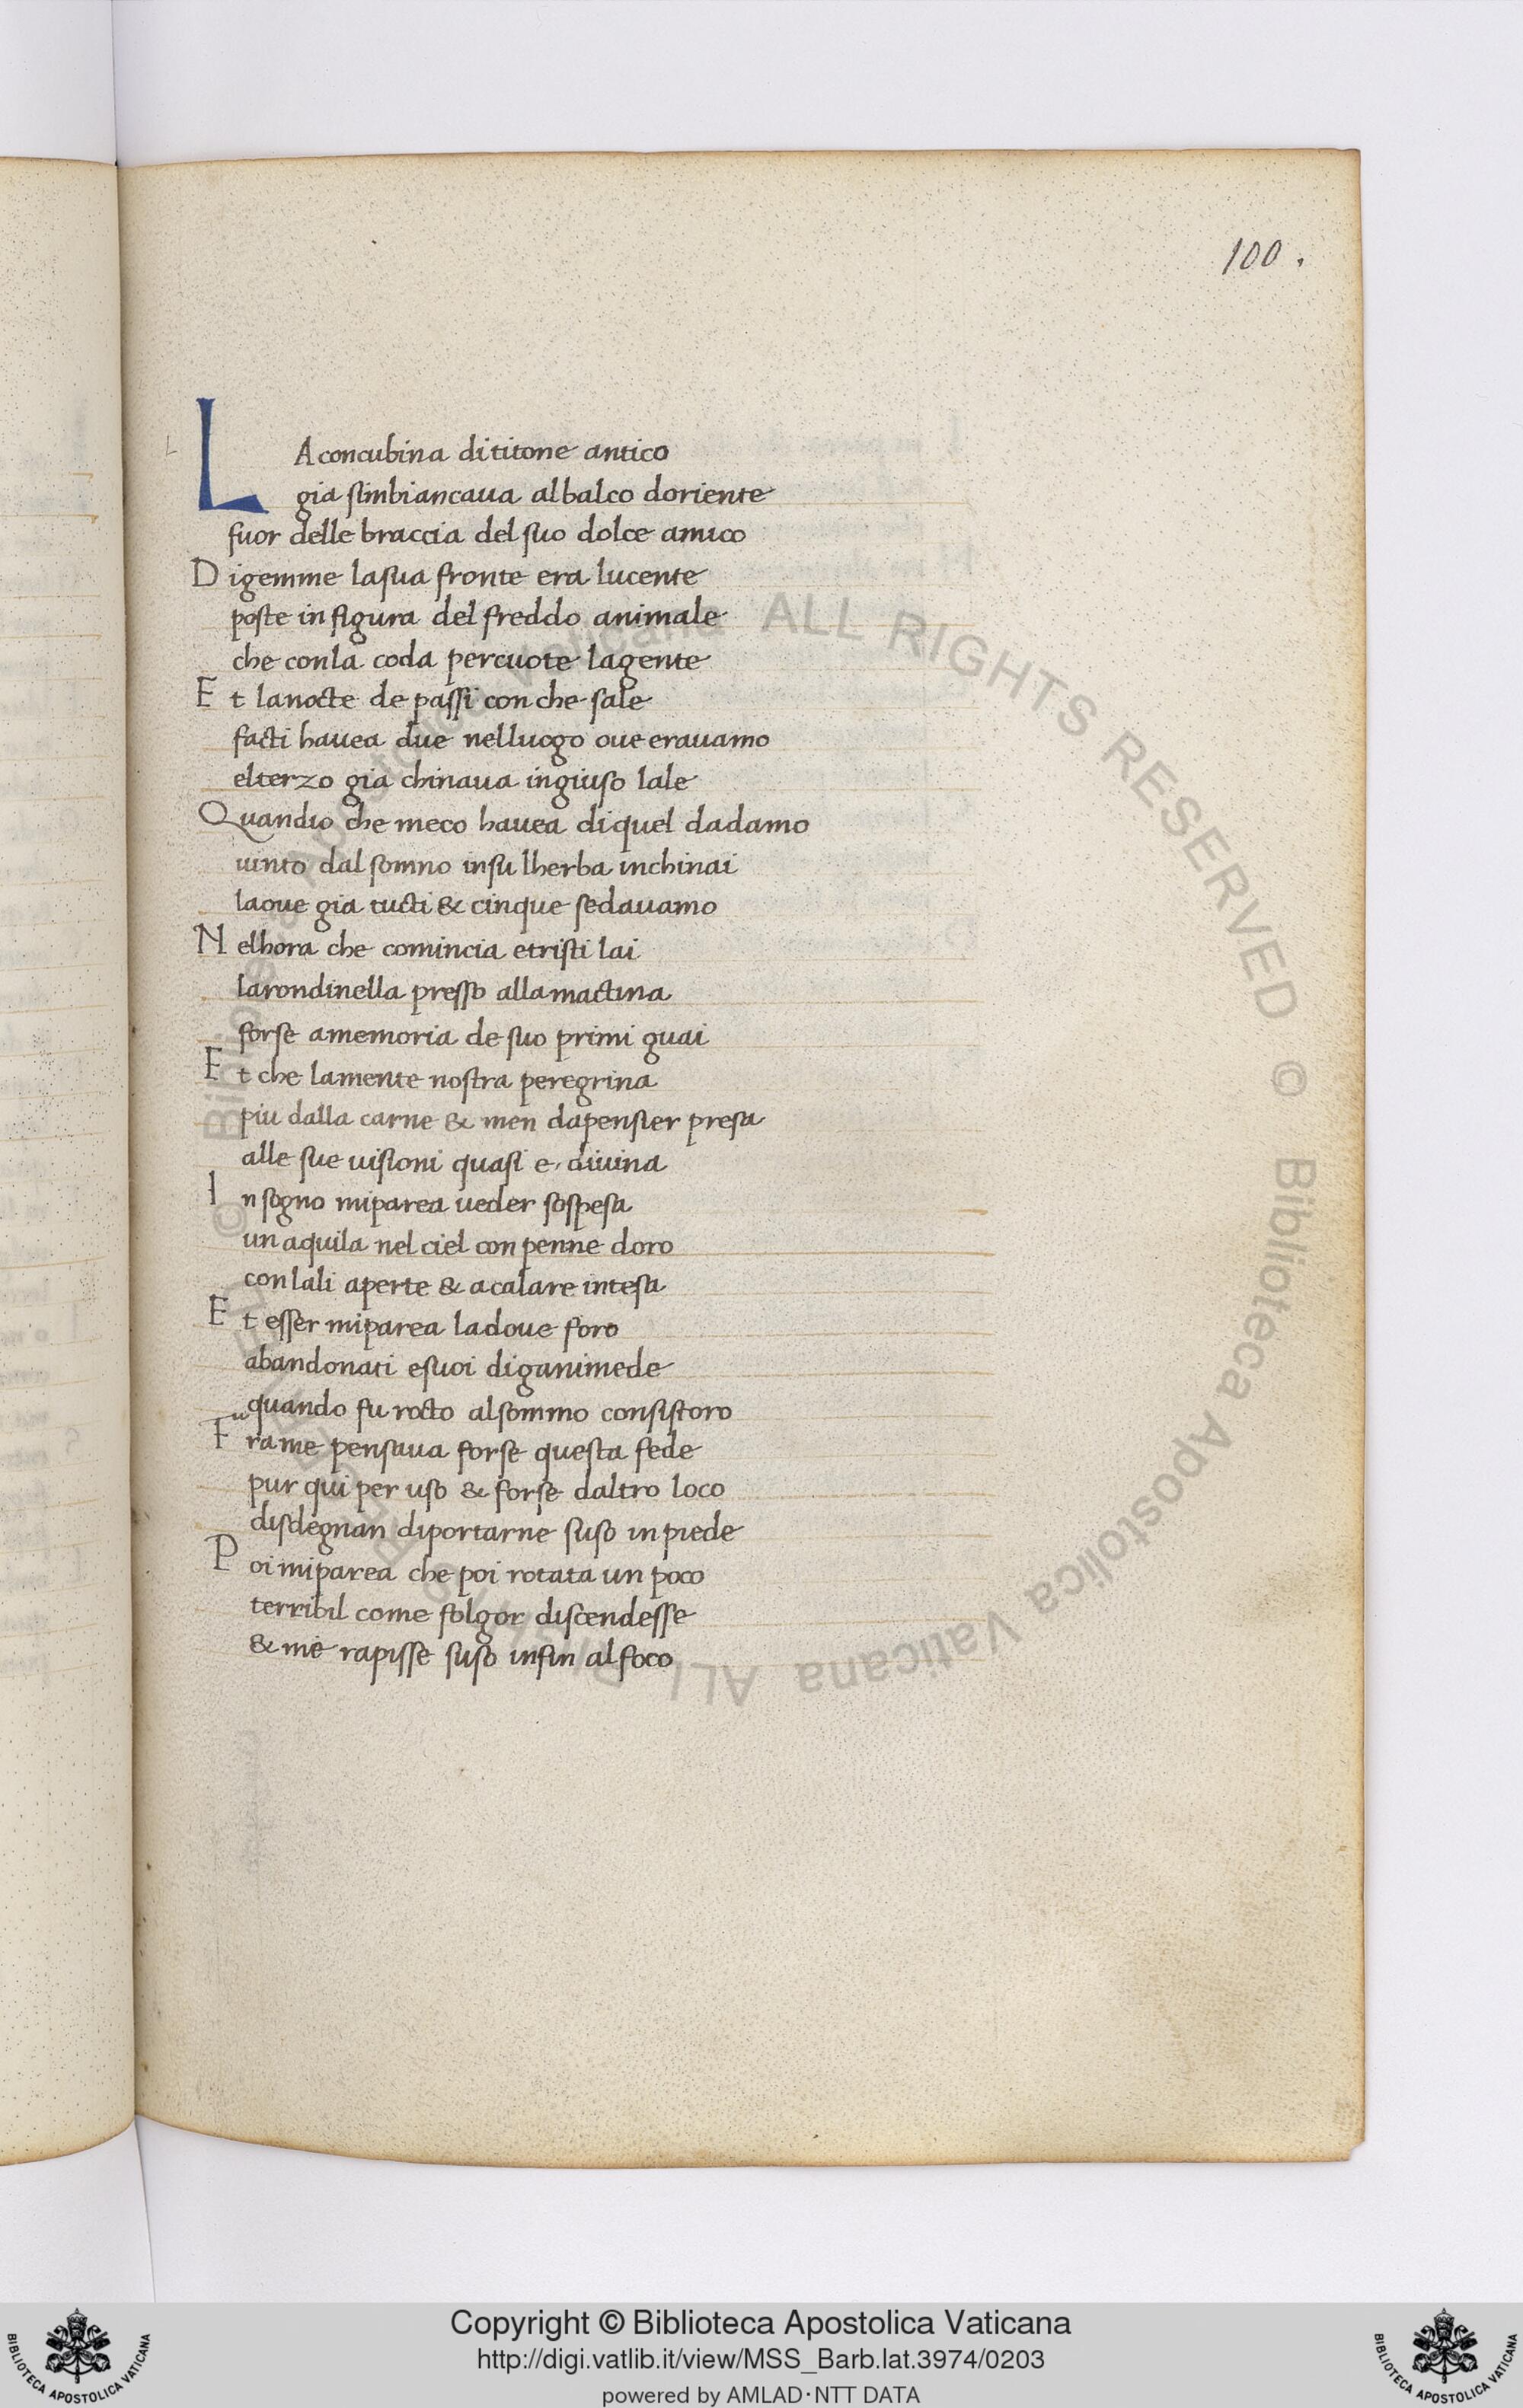 100.
L
LA concubina dititone antico
gia sinbiancaua albalco doriente
fuor delle braccia del suo dolce amico
Digemme lasua fronte era lucente
poste in figura del freddo animale
che conla coda percuote lagente
Et lanocte de passi con che sale
facti hauea due nelluogo oue erauamo
elterzo gia chinaua ingiuso lale
Quandio che meco hauea diquel dadamo
uinto dal somno insu lherba inchinai
laoue gia tucti & cinque sedauamo
Nelhora che comincia etristi lai
larondinella presso allamactina
forse amemoria de suo primi guai
Et che lamente nostra peregrina
piu dalla carne & men dapensier presa
alle sue uisioni quasi e diuina
In sogno miparea ueder sospesa
un aquila nel ciel con penne doro
con lali aperte & acalare intesa
Et esser miparea ladoue foro
abandonati esuoi diganimede
quando fu racto alsommo consistoro
Frame pensaua forse questa fede
pur qui per uso & forse daltro loco
disdegnan diportarne suso in piede
Poi miparea che poi rotata un poco
terribil come folgor discendesse
& me rapisse suso infin alfoco
© Biblioteca Apostolica Vaticana ALL RIGHTS RESERVED © Biblioteca Apostolica Vaticana ALL RIGHTS RESERVED
Copyright © Biblioteca Apostolica Vaticana
http://digi.vatlib.it/view/MSS_Barb.lat.3974/0203
powered by AMLAD·NTT DATA
BIBLIOTECA APOSTOLICA VATICANA
BIBLIOTECA APOSTOLICA VATICANA